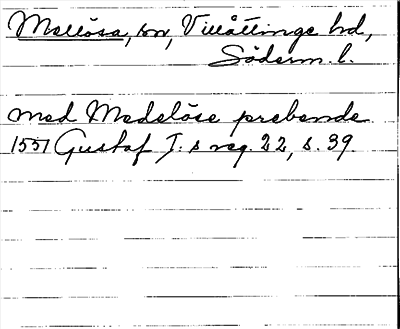 Mellösa, sn, Villåttinge hd,
Söderm. l.
med Medelöse prebende
1551 Gustaf I:s reg. 22, s. 39.